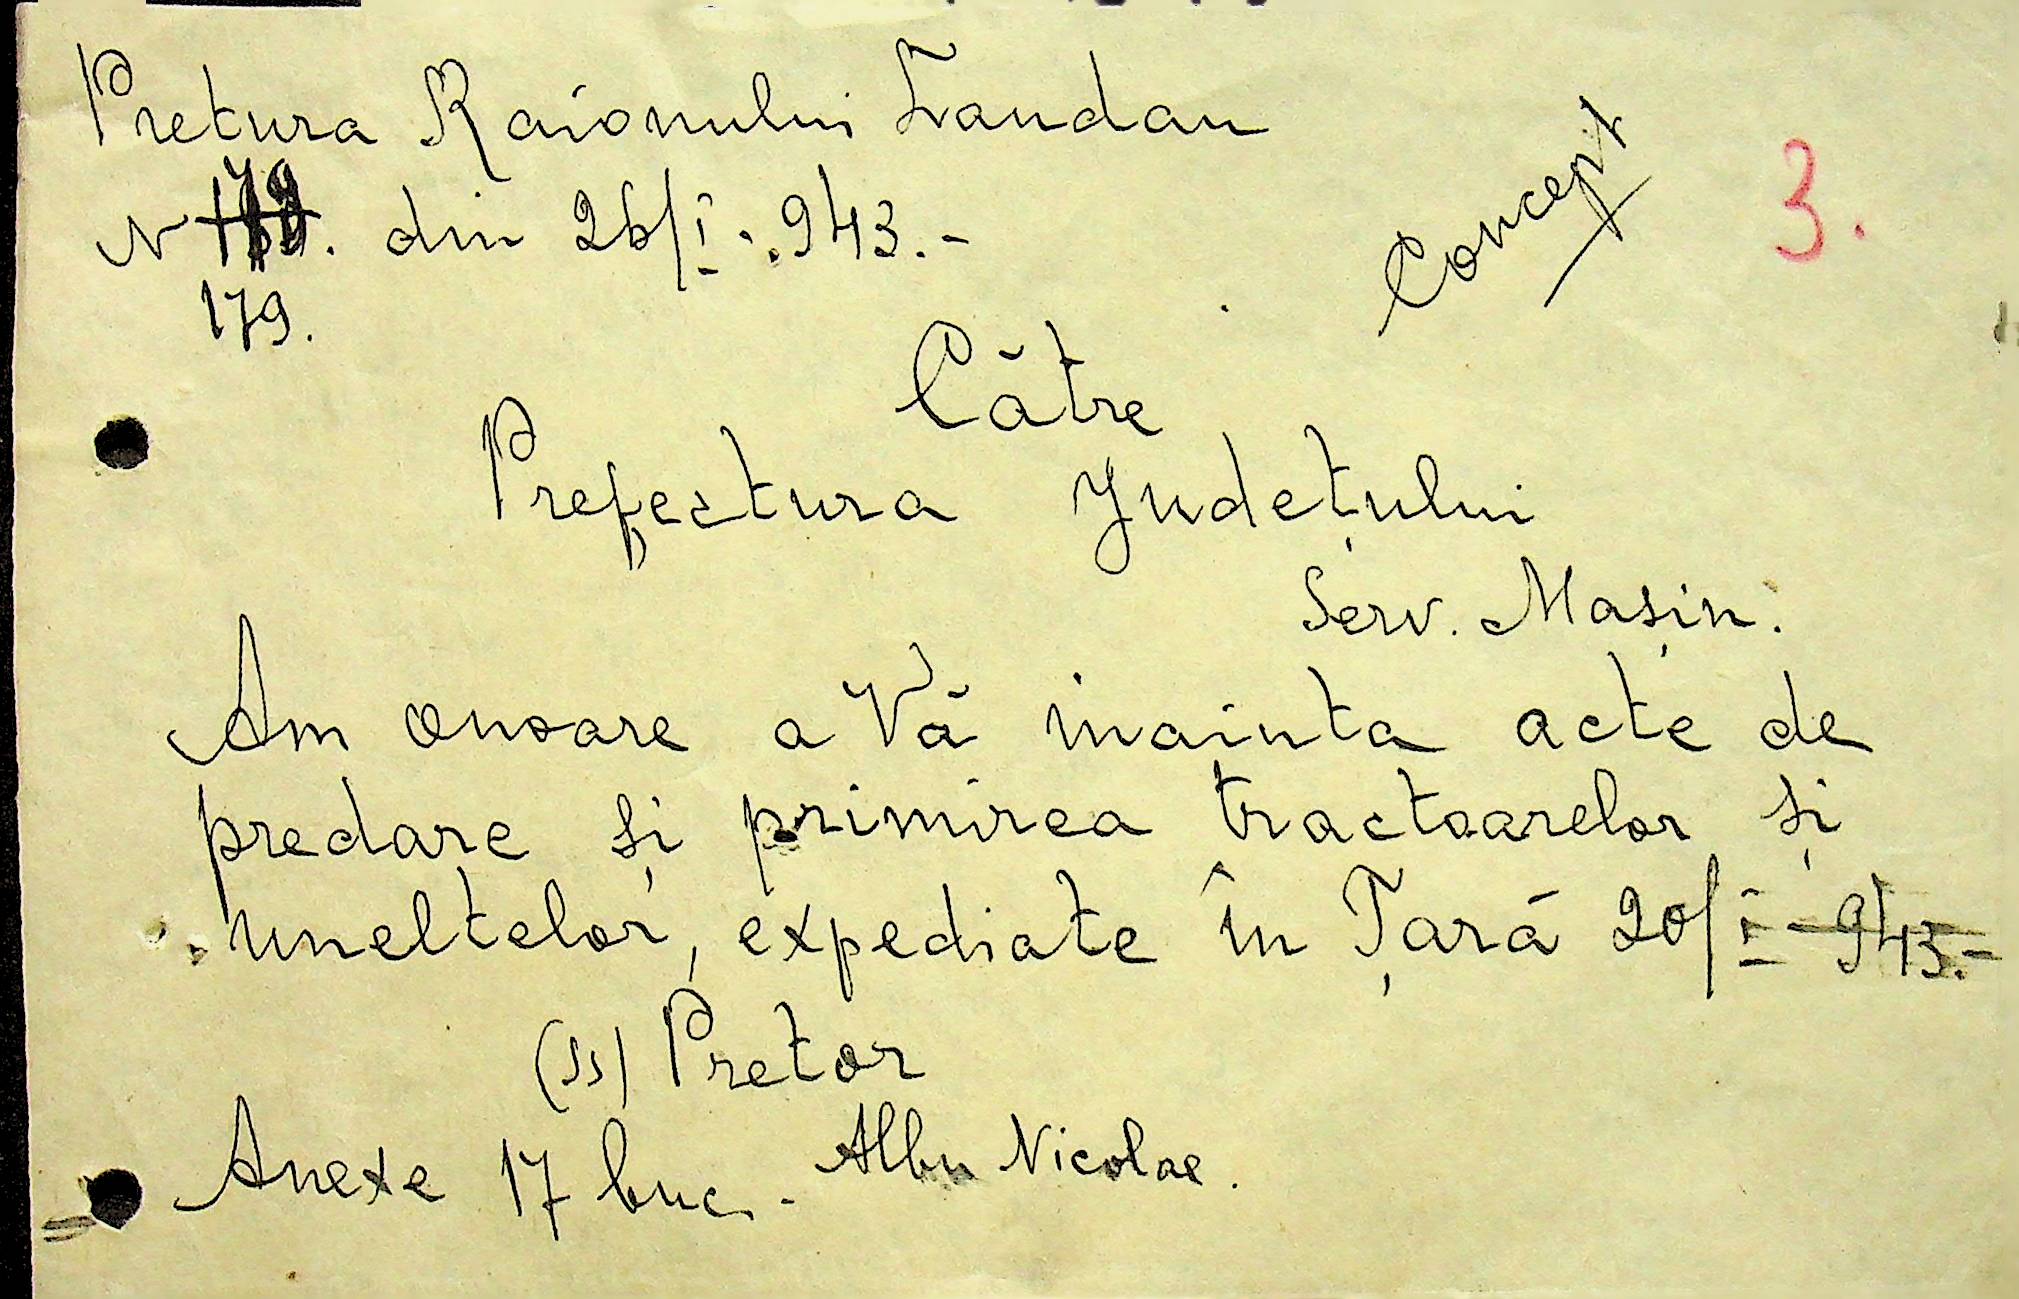 Pretura Raionului Landau
N 179. din 26/I.943.-
179.
Concept
3.
Către
Prefectura Județului
Serv. Mașin.
Am onoare a Vă inainta acte de
predare și primirea tractoarelor și
uneltelor, expediate în Țară 20/I-943.-
(ss) Pretor
Albu Nicolae.
Anexe 17 buc.-